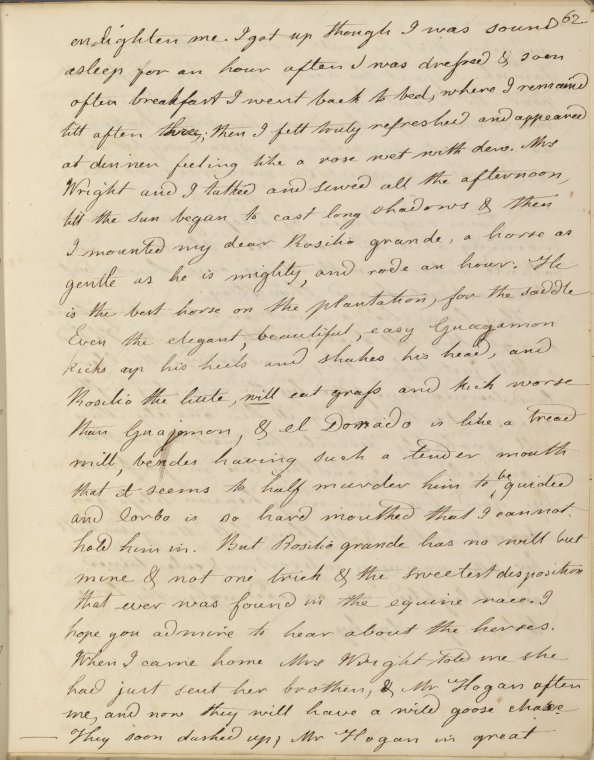 62
enlighten me. I got up though I was sound
asleep for an hour after I was dressed & soon
after breakfast I went back to bed, where I remain'd
till after three; then I felt truly refreshed and appeared
at dinner feeling like a rose wet with dew. Mrs
Wright and I talked and sewed all the afternoon,
till the sun began to cast long shadows & then
I mounted my dear Rosilio grande, a horse as
gentle as he is mighty, and rode an hour. He
is the best horse on the plantation, for the saddle
Even the elegant, beautiful, easy Guagamon
kicks up his heels and shakes his head, and
Rosilio the little, will eat grass and kick worse
than Guajamon, & el Donado is like a tread
mill, besides having such a tender mouth
that it seems to half murder him to be guided
and Corbo is so hard mouthed that I cannot
hold him in. But Rosilio grande has no will but
mine & not one trick & the sweetest disposition
that ever was found in the equine race. I
hope you admire to hear about the horses.
When I came home Mrs Wright told me she
had just sent her brother, & Mr Hogan after
me, and now they will have a wild goose chase
They soon dashed up, Mr Hogan in great